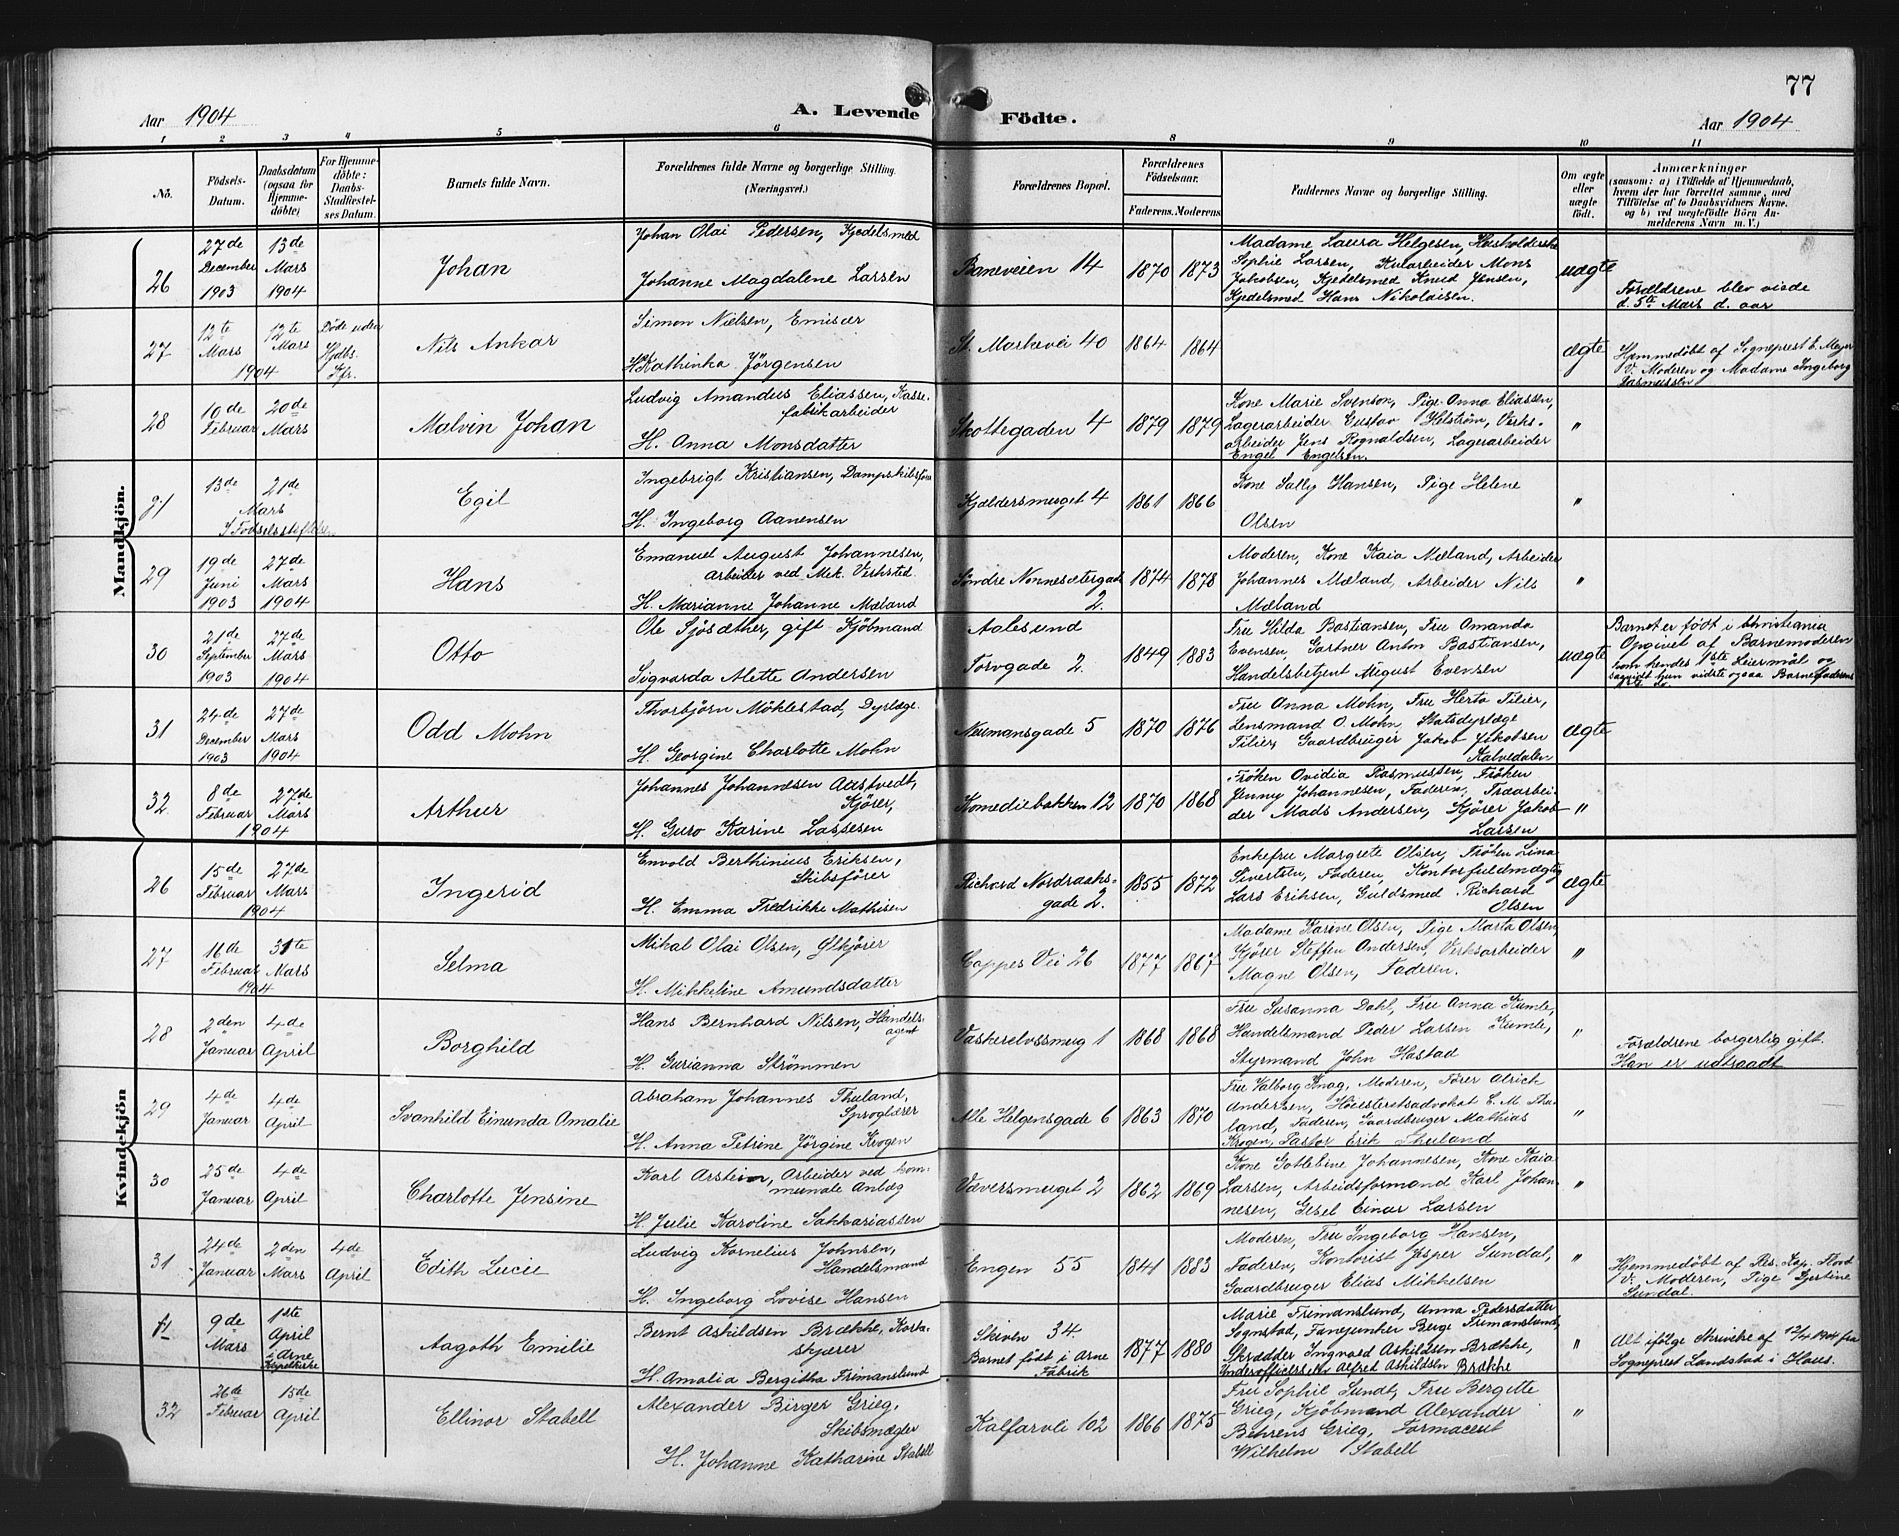 77
Aar 1904
A. Levende Födte.
Aar 1904
1 2 3 4 5 6 8 9 10 11
No.
Födsels-Datum.
Daabsdatum (ogsaa for Hjemme-döbte)
For Hjemme-döbte: Daabs-Stadfæstel-ses Datum.
Barnets fulde Navn.
Forældrenes fulde Navne og borgerlige Stilling. (Næringsvei.)
Forældrenes Bopæl.
Forældrenes Födselsaar.
Faderens. Moderens
Faddernes Navne og borgerlige Stilling.
Om ægte eller uægte födt.
Anmærkninger
(saasom: a) i Tilfælde af Hjemmedaab,
hvem der har forrettet samme, med
Tilföielse af to Daabsvidners Navne,
og b) ved uægtefödte Börn An-
melderens Navn m. V.)
Mandkjön.
26
27de December 1903
13de Mars 1904
Johan
Johan Olai Pedersen, Kjedelsmed
Johanne Magdalene Larsen
Baneveien 14
1870 1873
Madame Laura Helgesen, Husholderske
Sophie Larsen, Kularbeider Mons
Jakobsen, Kjedelsmed Knud Jensen,
Kjedelsmed Hans Nikolaisen.
uægte
Forældrene blev viede
d. 5te Mars d. aar
27
12te Mars
12te Mars
1904
Döde uden Hjdbs. Kfr.
Nils Ankar
Simon Nielsen, Emisær
H. Kathinka Jörgensen
St. Markevei 40
1864 1864
ægte
Hjemmedöbt af Sogneprest C. Meyer
V. Moderen og Madame Ingeborg
Rasmussen
28
10de Februar
20de Mars
Malvin Johan
Ludvig Amandus Eliassen, Kasse-
fabrikarbeider
H. Anna Monsdatter
Skottegaden 4
1879 1879
Kone Marie Svenson, Pige Anna Eliassen,
Lagerarbeider Gustav Helström, Verks-
arbeider Jens Rognaldsen, Lagerarbeider
Engel Engelsen.
"
g.1
13de
21de
Mars
I Födselsstiftelsen
Egil
Ingebrigt Kristiansen, Dampskibsförer
H. Ingeborg Aanensen
Kjeldersmuget 4
1861 1866
Kone Sally Hansen, Pige Helene
Olsen
"
29
19de Juni 1903
27de Mars 1904
Hans
Emanuel August Johannesen,
Arbeider ved Mek. Verksted.
H. Marianne Johanne Mæland
Söndre Nonnesætergade 2.
1874 1878
Moderen, Kone Kaia Mæland, Arbeider
Johannes Mæland, Arbeider Nils
Mæland
"
30
21de September 1903
27de Mars 1904
Otto
Ole Sjösæther, gift Kjöbmand
Sigvarda Alette Andersen
Aalesund
Torvgade 2.
1849 1883
Fru Hilda Bastiansen, Fru Amanda
Evensen, Gartner Anton Bastiansen,
Handelsbetjent August Evensen
uægte
Barnet er födt i Christiania
Opgivet af Barnemoderen
som hendes 1ste Leiermål og
saavidt hun vidste ogsaa Barnefaderens
31
24de December 1903
27de Mars 1904
Odd Mohn
Thorbjörn Möklestad, Dyrlæge
H. Georgine Charlotte Mohn
Neumansgade 5
1870 1876
Fru Anna Mohn, Fru Herta Tilier,
Lensmand O. Mohn, Statsdyrlæge
Tilier, Gaardbruger Jakob Jakobsen
Kalvedalen
ægte
32
8de Februar
27de Mars
1904
Arthur
Johannes Johannesen Aastvedt,
Kjörer,
H. Guro Karine Lassesen
Komediebakken 12
1870 1868
Fröken Ovidia Rasmussen, Fröken
Jenny Johannesen, Faderen, Træarbei-
der Mads Andersen, Kjörer Jakob
Larsen
"
Kvindekjön
26
15de Februar
27de Mars
1904
Ingerid
Envold Berthinius Eriksen,
Skibsförer
H. Emma Fredrikke Mathisen
Richard Nordraaks-gade 2.
1855 1872
Enkefru Margrete Olsen, Fröken Lina
Sivertsen, Faderen, Kontorfuldmægtig
Lars Eriksen, Guldsmed Richard
Olsen
ægte
27
16de Februar
31te Mars
1904
Selma
Mikal Olai Olsen, Ölkjörer
H. Mikkeline Amundsdatter
Cappes Vei 26
1877 1867
Madame Karine Olsen, Pige Marta Olsen
Kjörer Steffen Andersen, Verksarbeider
Magne Olsen, Faderen.
"
28
2den Januar
4de April
Borghild
Hans Bernhard Nilsen, Handels-
agent
H. Gurianna Strömmen
Vaskerelvssmug 1
1868 1868
Fru Susanna Dahl, Fru Anna Kumle,
Handelsmand Peder Larsen Kumle,
Styrmand John Hastad
"
Forældrene borgerlig gift.
Han er udtraadt
29
4de Januar
4de April
Svanhild Einunda Amalie
Abraham Johannes Thuland,
Sproglærer
H. Anna Petrine Jörgine Krogen
Alle Helgensgade 6
1863 1870
Fru Valborg Knag, Moderen, Förer Alrich
Andersen, Höiesteretsadvokat C. M. Thu-
land, Faderen, Gaardbruger Mathias
Krogen, Pastor Erik Thuland
"
30
25de Januar
4de April
Charlotte Jensine
Karl Arstein, Arbeider ved kom-
munale Anlæg
H. Julie Karoline Sakkariassen
Væversmuget 2
1862 1869
Kone Gotlebine Johannesen, Kone Kaia
Larsen, Arbeidsformand Karl Johan-
nesen, Gesel Einar Larsen
"
31
24de Januar
2den Mars
4de April
Edith Lucie
Ludvig Kornelius Johnsen,
Handelsmand
H. Ingeborg Lovise Hansen
Engen 55
1841 1883
Moderen, Fru Ingeborg Hansen,
Faderen, Kontorist Jesper Sundal,
Gaardbruger Elias Mikkelsen
"
Hjemmedöbt af Res. Kap. Flood
V. Moderen, Pige Gjertine
Sundal.
f1
9de Mars
1ste April
i Arne Kapelkirke
Aagoth Emilie
Bernt Askildsen Brække, Kork-
skjærer
H. Amalia Bergitha Frimanslund
Skiven 34.
Barnet födt i Arne
Fabrik
1877 1880
Marie Frimanslund, Anna Pedersdatter
Sognstad, Fanejunker Berge Frimanslund,
Skrædder Ingvald Askildsen Brække,
Underofficerselev Alfred Askildsen Brække
"
Alt ifölge Skrivelse af 12/4 1904 fra
Sogneprest Landstad i Haus.
32
26de Februar
15de April
Ellinor Stabell
Alexander Birger Grieg,
Skibsmægler
H. Johanne Katharine Stabell
Kalfarvei 102
1866 1875
Fru Sophie Sundt, Fru Bergitte
Grieg, Kjöbmand Alexander
Behrens Grieg, Farmaceut
Wilhelm Stabell
"